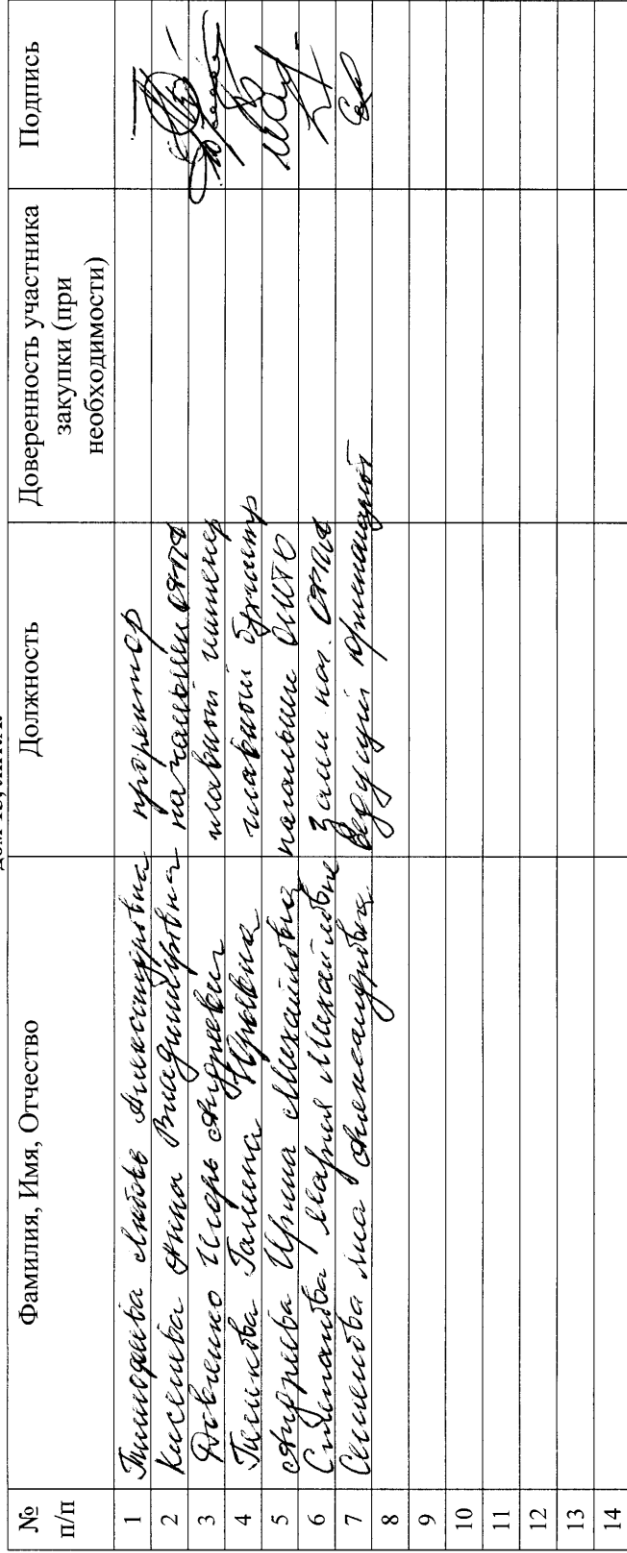 № п/п Фамилия, Имя, Отчество Должность Доверенность участника закупки (при необходимости) Подпись
1 Тимофеева Любовь Александровна проректор
2 Киселева Анна Владимировна начальник
3 Игорь Андреевич главный инженер
4 Галина Юрьевна главный бухгалтер
5 Андреева Ирина Михайловна начальник ОМТО
6 Степанова Мария Михайловна Зам. нач.
7 Семенова Александровна Ведущий юрисконсульт
8
9
10
11
12
13
14